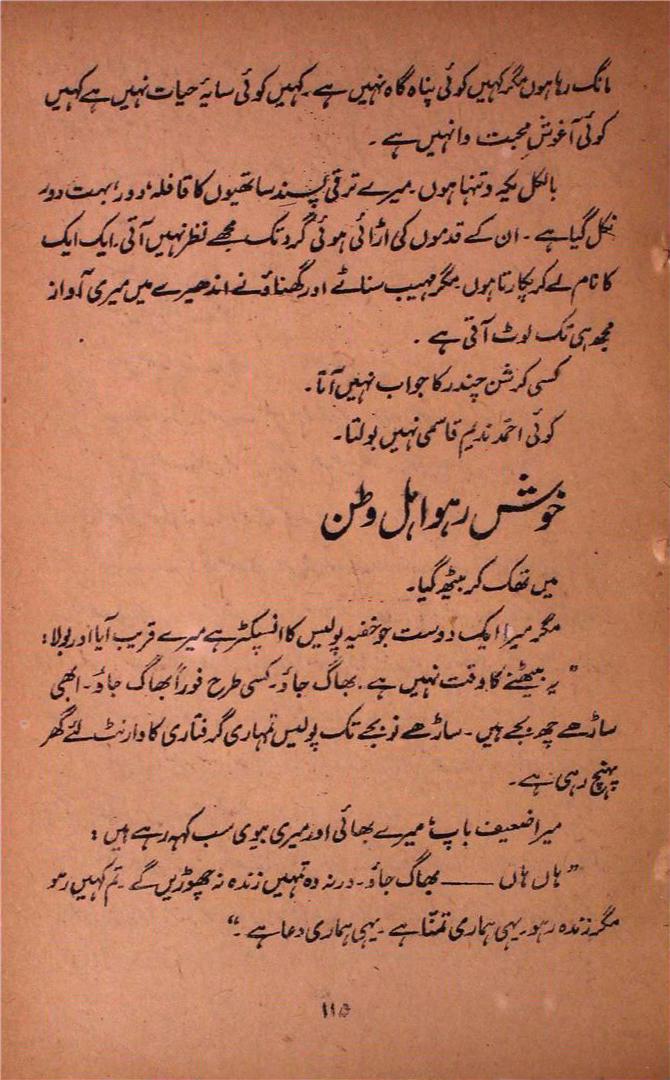 مانگ رہا ہوں مگر کہیں کوئی پناہ گاہ نہیں ہے۔ کہیں کوئی سایۂ حیات نہیں ہے کہیں
کوئی آغوشِ محبت وا نہیں ہے۔
بالکل یکہ و تنہا ہوں۔ میرے ترقی پسند ساتھیوں کا قافلہ، دور، بہت دور
نکل گیا ہے۔ ان کے قدموں کی اڑائی ہوئی گرد تک مجھے نظر نہیں آتی۔ ایک ایک
کا نام لے کر پکارتا ہوں۔ مگر مہیب سناٹے اور گھناؤنے اندھیرے میں میری آواز
مجھ ہی تک لوٹ آتی ہے۔
کسی کرشن چندر کا جواب نہیں آتا۔
کوئی احمد ندیم قاسمی نہیں بولتا۔
خوش رہو اہل وطن
میں تھک کر بیٹھ گیا۔
مگر میرا ایک دوست جو خفیہ پولیس کا انسپکٹر ہے میرے قریب آیا اور بولا:
”یہ بیٹھنے کا وقت نہیں ہے۔ بھاگ جاؤ۔ کسی طرح فوراً بھاگ جاؤ۔ ابھی
ساڑھے چھ بجے ہیں۔ ساڑھے نو بجے تک پولیس تمہاری گرفتاری کا وارنٹ لئے گھر
پہنچ رہی ہے۔
میرا ضعیف باپ، میرے بھائی اور میری بیوی سب کہہ رہے ہیں:
”ہاں ہاں —— بھاگ جاؤ۔ ورنہ وہ تمہیں زندہ نہ چھوڑیں گے۔ تم کہیں رہو
مگر زندہ رہو۔ یہی ہماری تمنّا ہے۔ یہی ہماری دعا ہے۔“
۱۱۵